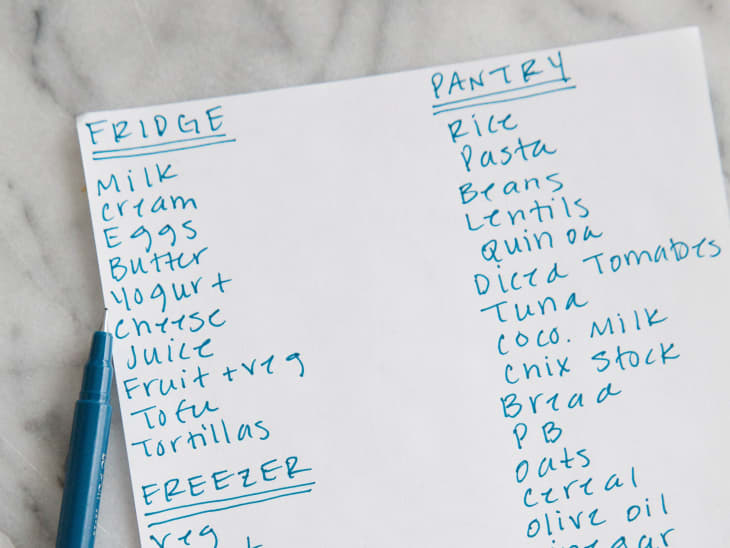 FRIDGE
Milk
cream
Eggs
Butter
Yogurt
cheese
Juice
Fruit + veg
Tofu
Tortillas
FREEZER
veg
PANTRY
Rice
Pasta
Beans
Lentils
Quinoa
Diced Tomatoes
Tuna
coco. Milk
chix Stock
Bread
PB
oats
cereal
olive oil